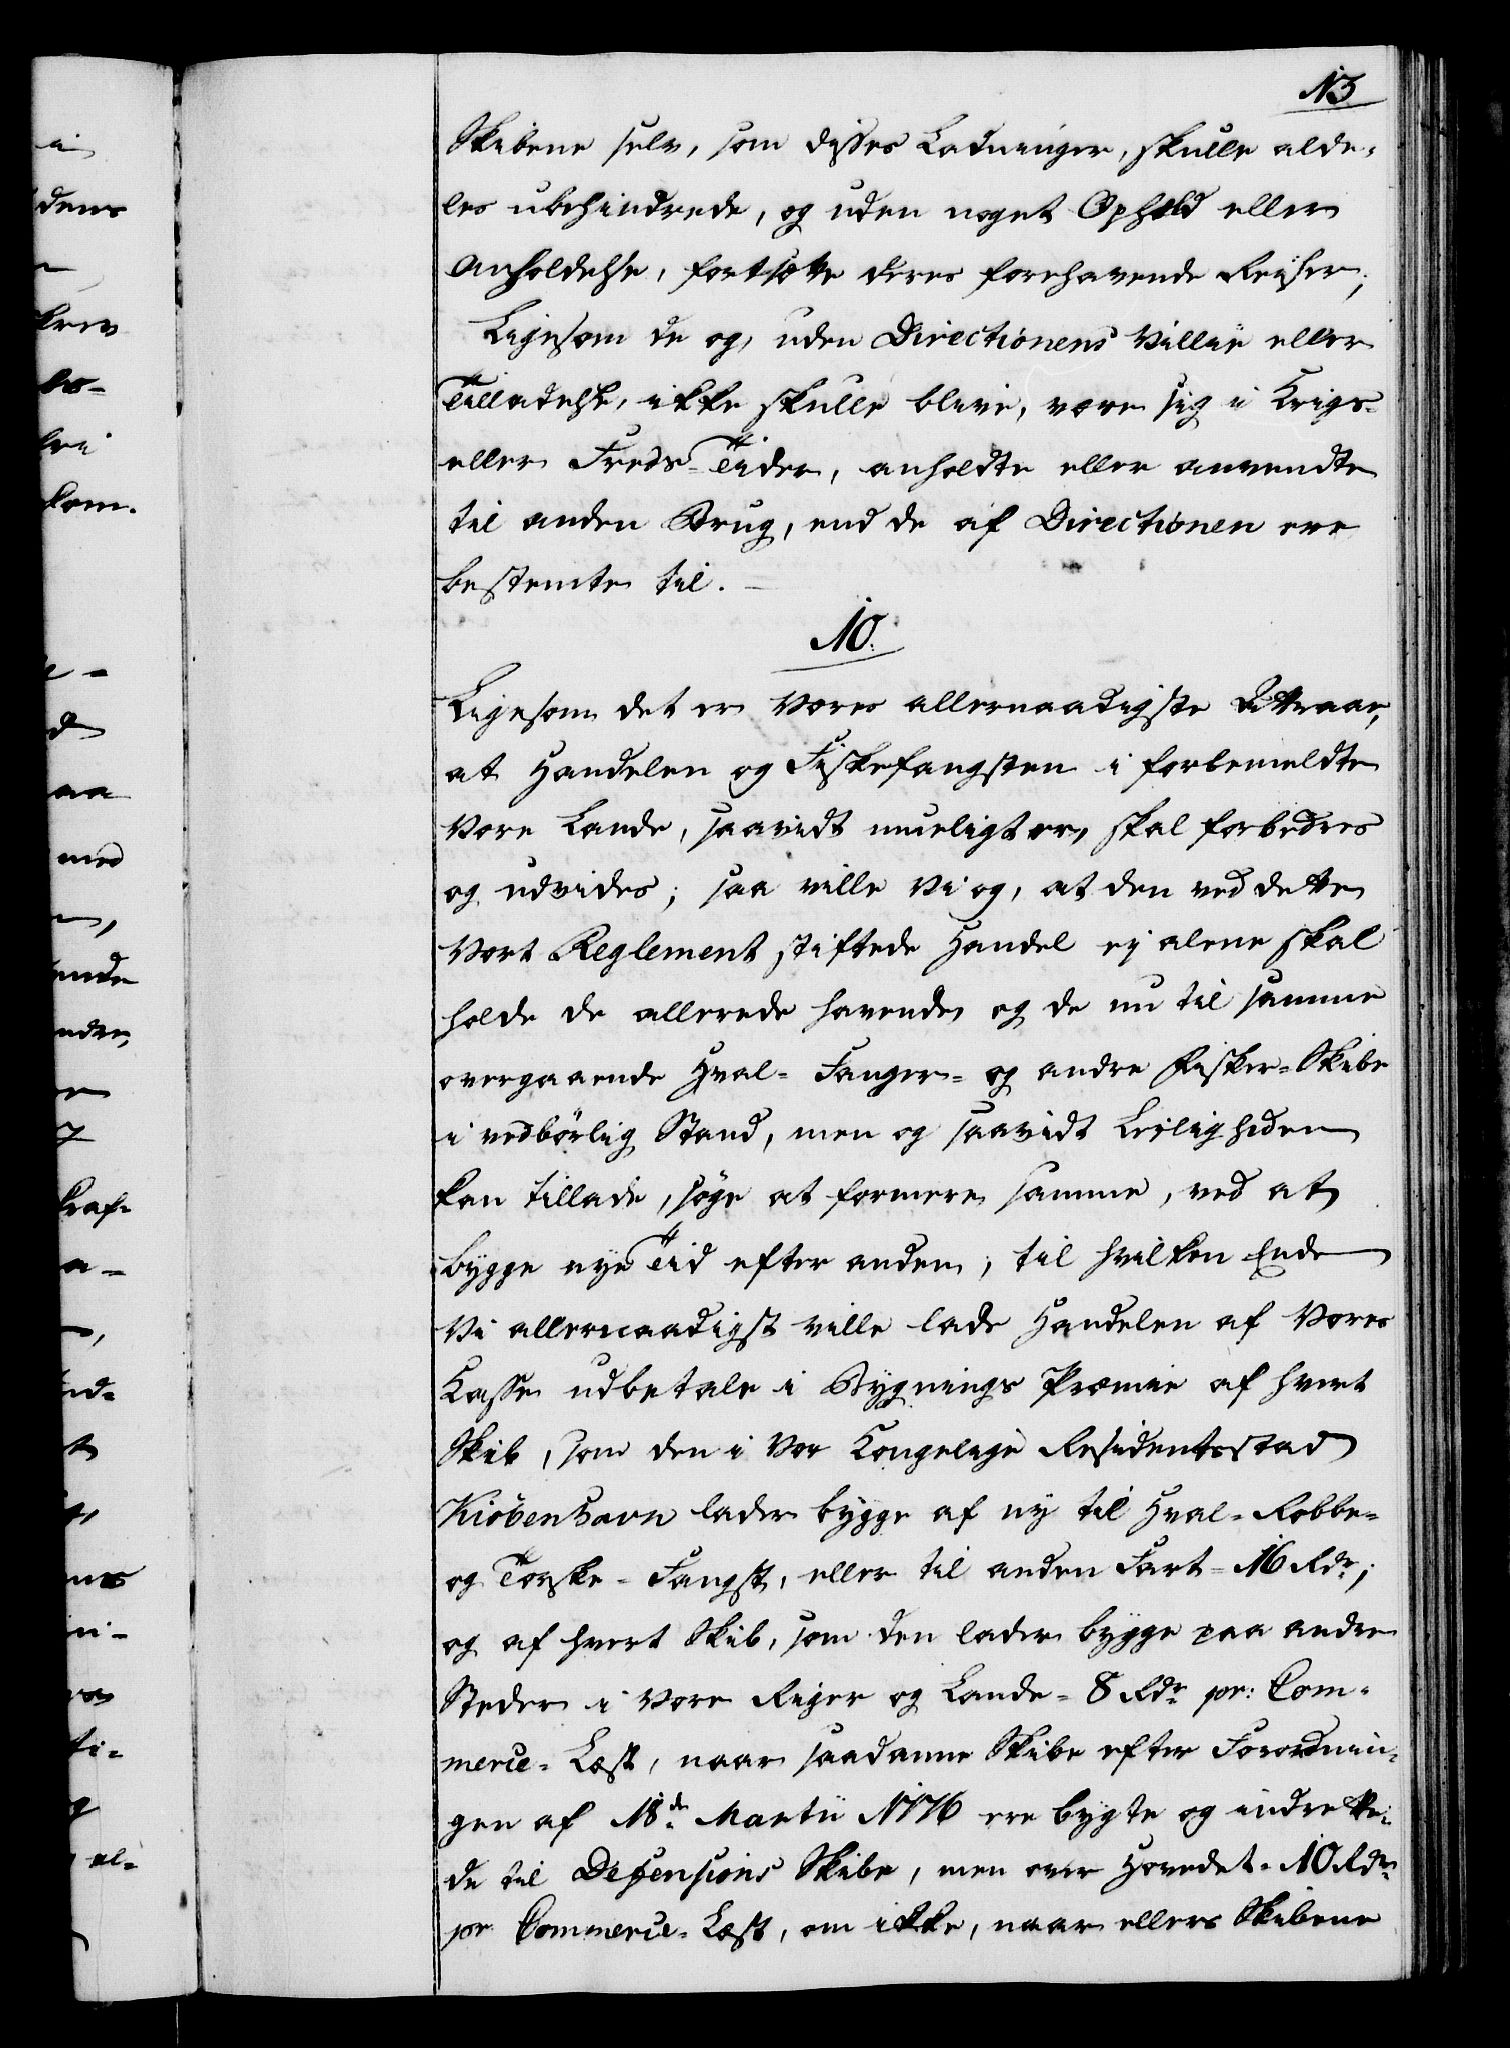 13
Skibene selv, som disses Ladninger, skulle alde-
les ubehindrede, og uden noget Ophold eller
Anholdelse, fortsætte deres forehavende Reiser;
Ligesom de og, uden Directionens Villie eller
Tilladelse, ikke skulle blive, være sig i Krigs-
eller Freds-Tider, anholdte eller anvendte
til anden Brug, end de af Directionen ere
bestemte til.
10.
Ligesom det er Vores allernaadigste Attraae,
at Handelen og Fiskefangsten i forbemeldte
Vore Lande, saavidt mueligt er, skal forbedres
og udvides; saa ville Vi og, at den ved dette
Vort Reglement stiftede Handel ej alene skal
holde de allerede havende, og de nu til samme
overgaaende Hval- Fanger- og andre Fisker-Skibe
i vedbörlig Stand, men og saavidt Leiligheden
kan tillade, söge at formere samme, ved at
bygge nye Tid efter anden; til hvilken Ende
Vi allernaadigst ville lade Handelen af Vores
Casse udbetale i Bygnings Præmie af hvert
Skib, som den i Vor Kongelige Residentsstad
Kiöbenhavn lader bygge af ny til Hval- Robbe-
og Torske-Fangst, eller til anden Fart - 16 Rdr;
og af hvert Skib, som den lader bygge paa andre
Steder i Vore Riger og Lande - 8 Rdr pr: Com-
merce-Læst, naar saadanne Skibe efter Forordnin-
gen af 18de Martii 1776 ere bygte og indrette-
de til Defensions Skibe, men over Hovedet - 10 Rdr
pr Commerce-Læst, om ikke, naar ellers Skibene